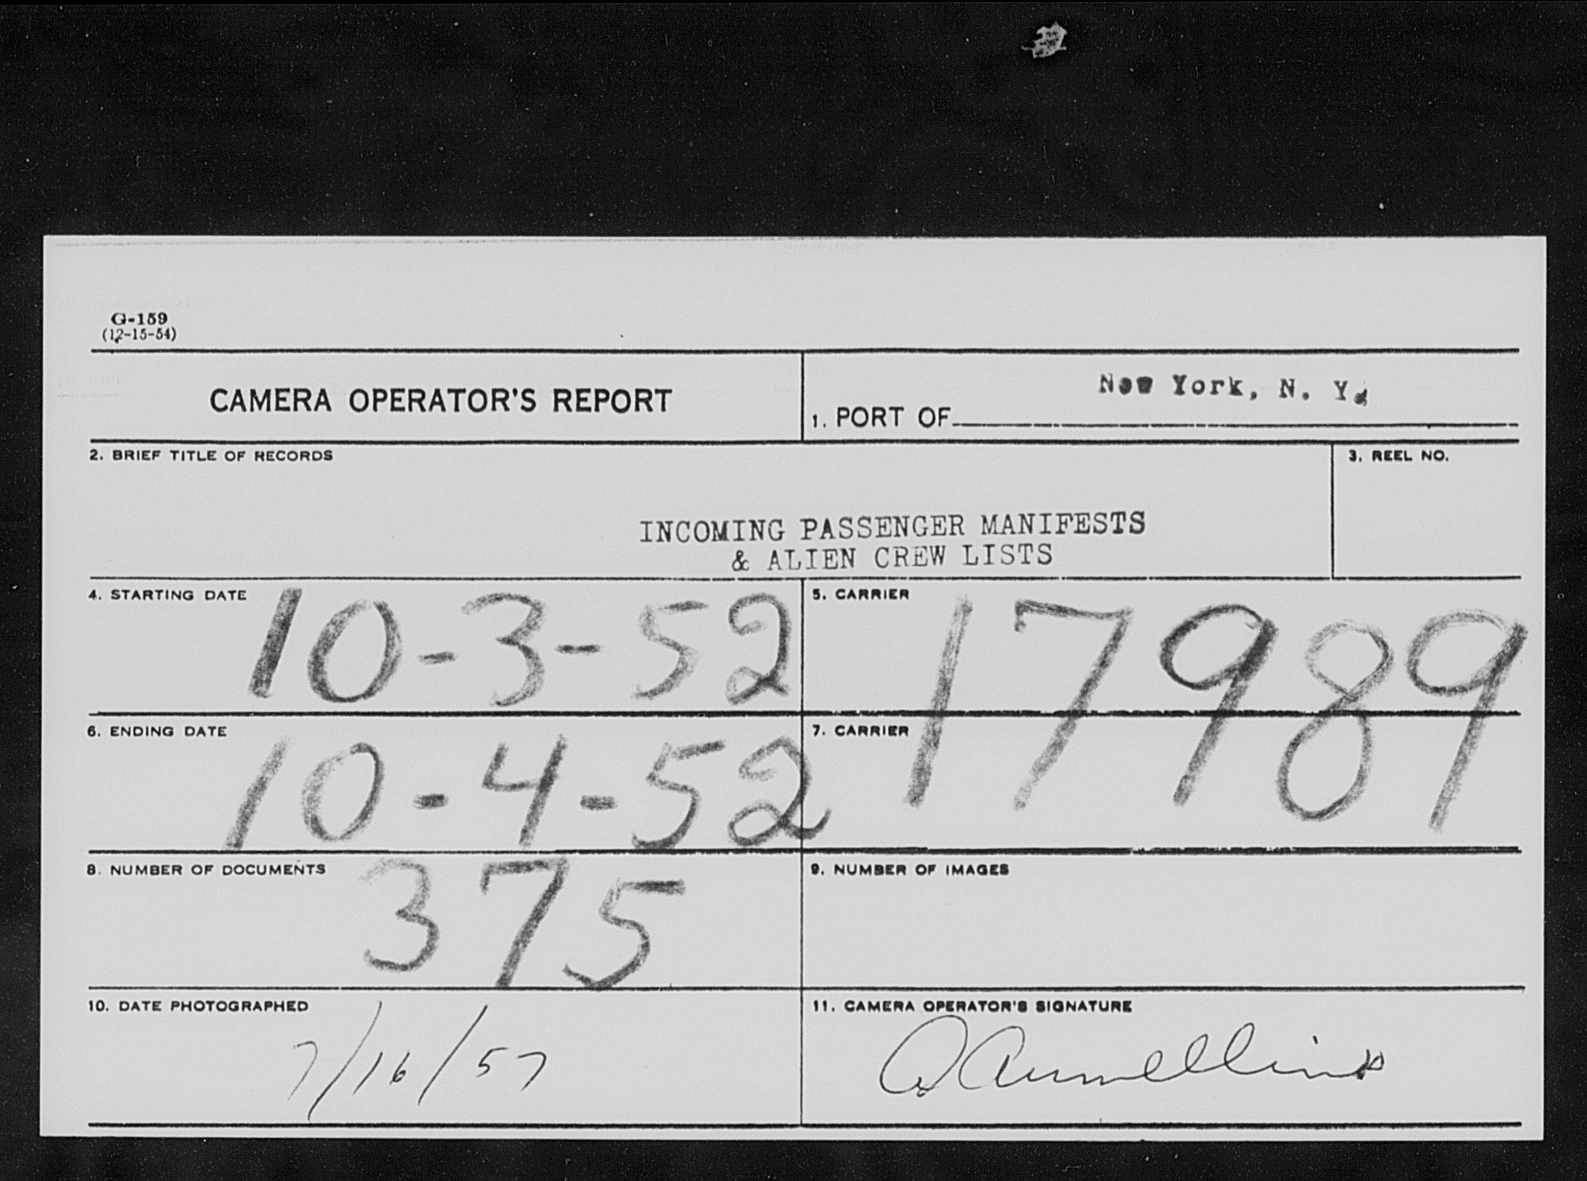 G-159
(12-15-54)
CAMERA OPERATOR'S REPORT
1. PORT OF New York, N. Y.
2. BRIEF TITLE OF RECORDS
INCOMING PASSENGER MANIFESTS
& ALIEN CREW LISTS
3. REEL NO.
4. STARTING DATE 10-3-52
5. CARRIER 17989
6. ENDING DATE 10-4-52
7. CARRIER
8. NUMBER OF DOCUMENTS 375
9. NUMBER OF IMAGES
10. DATE PHOTOGRAPHED
7/16/57
11. CAMERA OPERATOR'S SIGNATURE